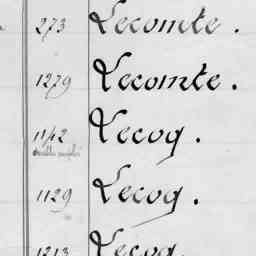 273 Lecomte.
1279 Lecomte.
1142 Lecoq.
1129 Lecoq.
1213 Lecoq.